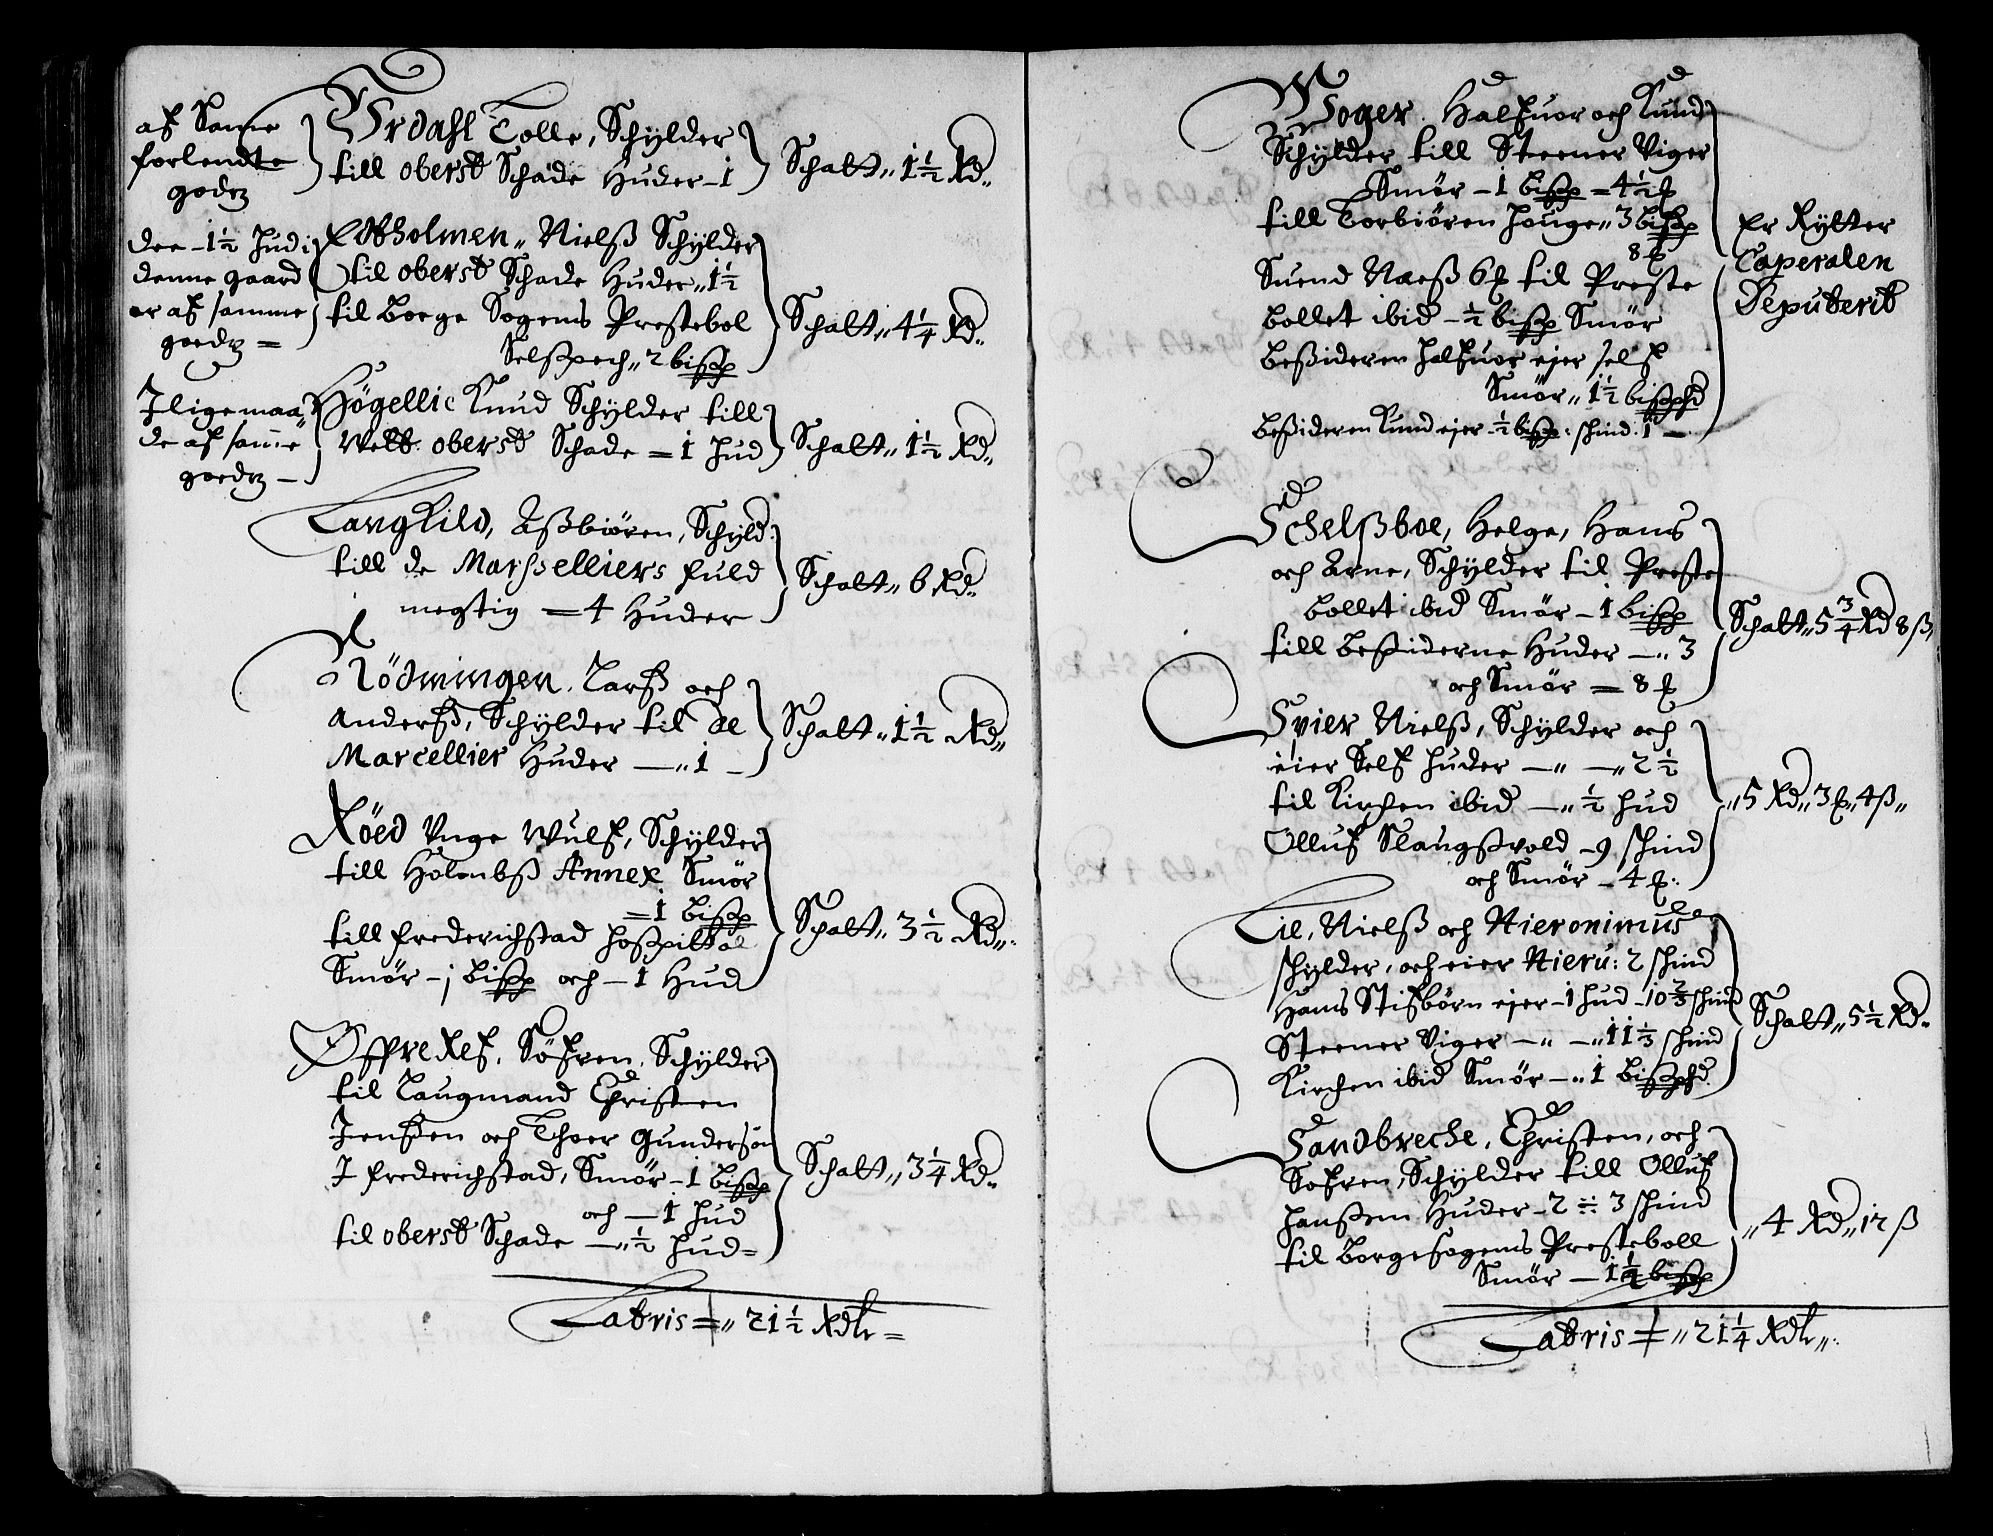 af Samme
forlendte
godtz
Ørdahl Tolle, Schylder
till oberst Schade Huder - 1
Schatt„ 1½ Rd„
dee - 1½ hud i
denne gaard
er af samme
goedtz =
Edtholmen„ Nielß Schylder
til oberst Schade Huder„ 1½
til Borge Sogens Prestebol
Selßpech„ 2 bißp
Schatt„ 4¼ Rd„
Jligemaa„
de af samme
goedtz -
Högellie Knud Schylder till
Welb: oberst Schade = 1 hud
Schatt„ 1½ Rd„
Langkild, Aßbiören, Schyld:
till de Marsselliers fuld
megtig = 4 Huder
Schatt„ 6 Rd„
Rödmingen. Larß och
Anderß, Schylder til de
Marcellier Huder —„ 1 -
Schatt„ 1½ Rd„
Röed Unge Wulf, Schylder
till Holenbß Annex Smör
= 1 bißp
till frederichstad hoßpittal
Smör - j bißp och - 1 Hud
Schatt„ 3½ Rd„
Offrekef, Söfren, Schylder
til Laugmand Christen
Jenßen och Thoer Gundersön
J frederichstad, Smör - 1 bißp
och — 1 hud
til oberst Schade —„ ½ hud =
Schatt„ 3¼ Rd„
Latris =„ 21½ Rdlr =
Woger. Halfuor och Knud
Schylder till Steener Viger
Smör - 1 bißp = 4½ ℔
till Torbiören hauge„ 3 bißp
8 ℔
Suend Naeß 6 ℔ til Preste
bollet ibid - ½ bißp Smör
beßideren halfuor ejer self
Smör„ 1½ bißpd
beßideren Knud ejer - ½ bißp: schind: 1 —
Er Rytter
Caperalen
Deputerit
Schelßboe, Helge, Hans
och Arne, Schylder til Preste
bollet ibid Smör - 1 bißp
till beßiderne Huder —„ 3
och Smör = 8 ℔
Schatt„ 5¾ Rd 8 ß,
Spier Nielß, Schylder och
eier Self huder —„ —„ 2½
til Kirchen ibid —„ ½ hud
Olluf Slaugßvold - 9 schind
och Smör - 4 ℔:
„ 5 Rd„ 3 ℔„ 4 ß„
Lie, Nielß och Hieronimus
schylder, och eier Hieru: 2 schind
Hans Stifbörn ejer - 1 hud - 10⅔ schind
Steener Viger —„ —„ 11⅓ schind
Kirchen ibid Smör —„ 1 bißpd.
Schatt„ 5½ Rd„
Sandbreche, Christen, och
Sofren, Schylder till Olluf
Hanßen Huder - 2 = 3 schind
til Borgesogens Presteboll
Smör — 1½ bißp
„ 4 Rd„ 12 ß
Latris =„ 21¼ Rdlr„